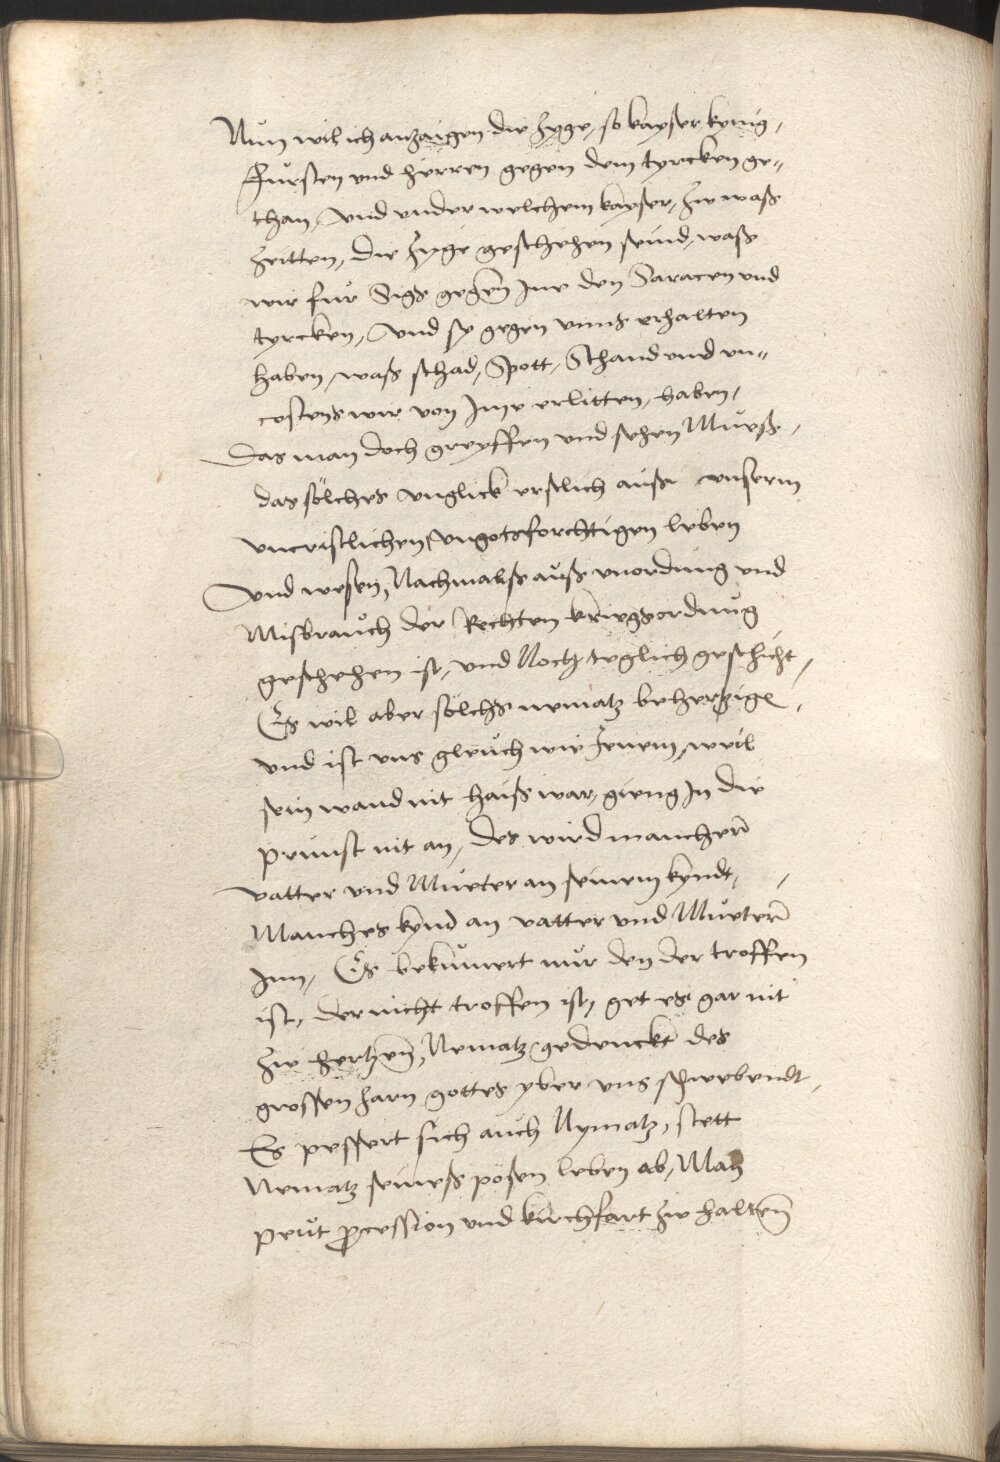 Nun wil ich anzaigen die Zyge, so kayser kynig,
Fursten und herren gegen dem tyrcken ge„
than, Und under welchem kayser, Zw waß
Zeitten, die Zyge geschehen seind, waß
wir fur Sigs gegen Jne den Saracen und
tyrcken, Und sy gegen unns erhalten
haben, waß schad, Spott, Schand und un„
costens wir von Jnne erlitten, haben,
Das man doch greyffen und sehen Mueß,
das sölches unglick erstlich auß unserm
uncristlichen, ungotsforchtigen leben
Und wesen, Nachmalß auß unordnung und
Misbrauch der Rechten kriegsordnug
geschehen ist, und Noch teglich geschicht,
Es wil aber sölchs nematz beherzige,
und ist uns gleuch wie Jenem, weil
sein wand nit haiß war, gieng In die
prunst nit an, des wird mancher
vatter und Mueter an seinem kyndt,
Manches kynd an vatter und Mueter
Jnn, Es bekumert nur den der troffen
ist, der nicht troffen ist, get es gar nit
Zw hertzen, Nematz gedenckt des
grossen Zarn gottes yber uns schwebendt,
Es pessert sich auch Nymatz, stett
Nematz seines pösen leben ab, Man
peut procession und kirchfart Zw halten